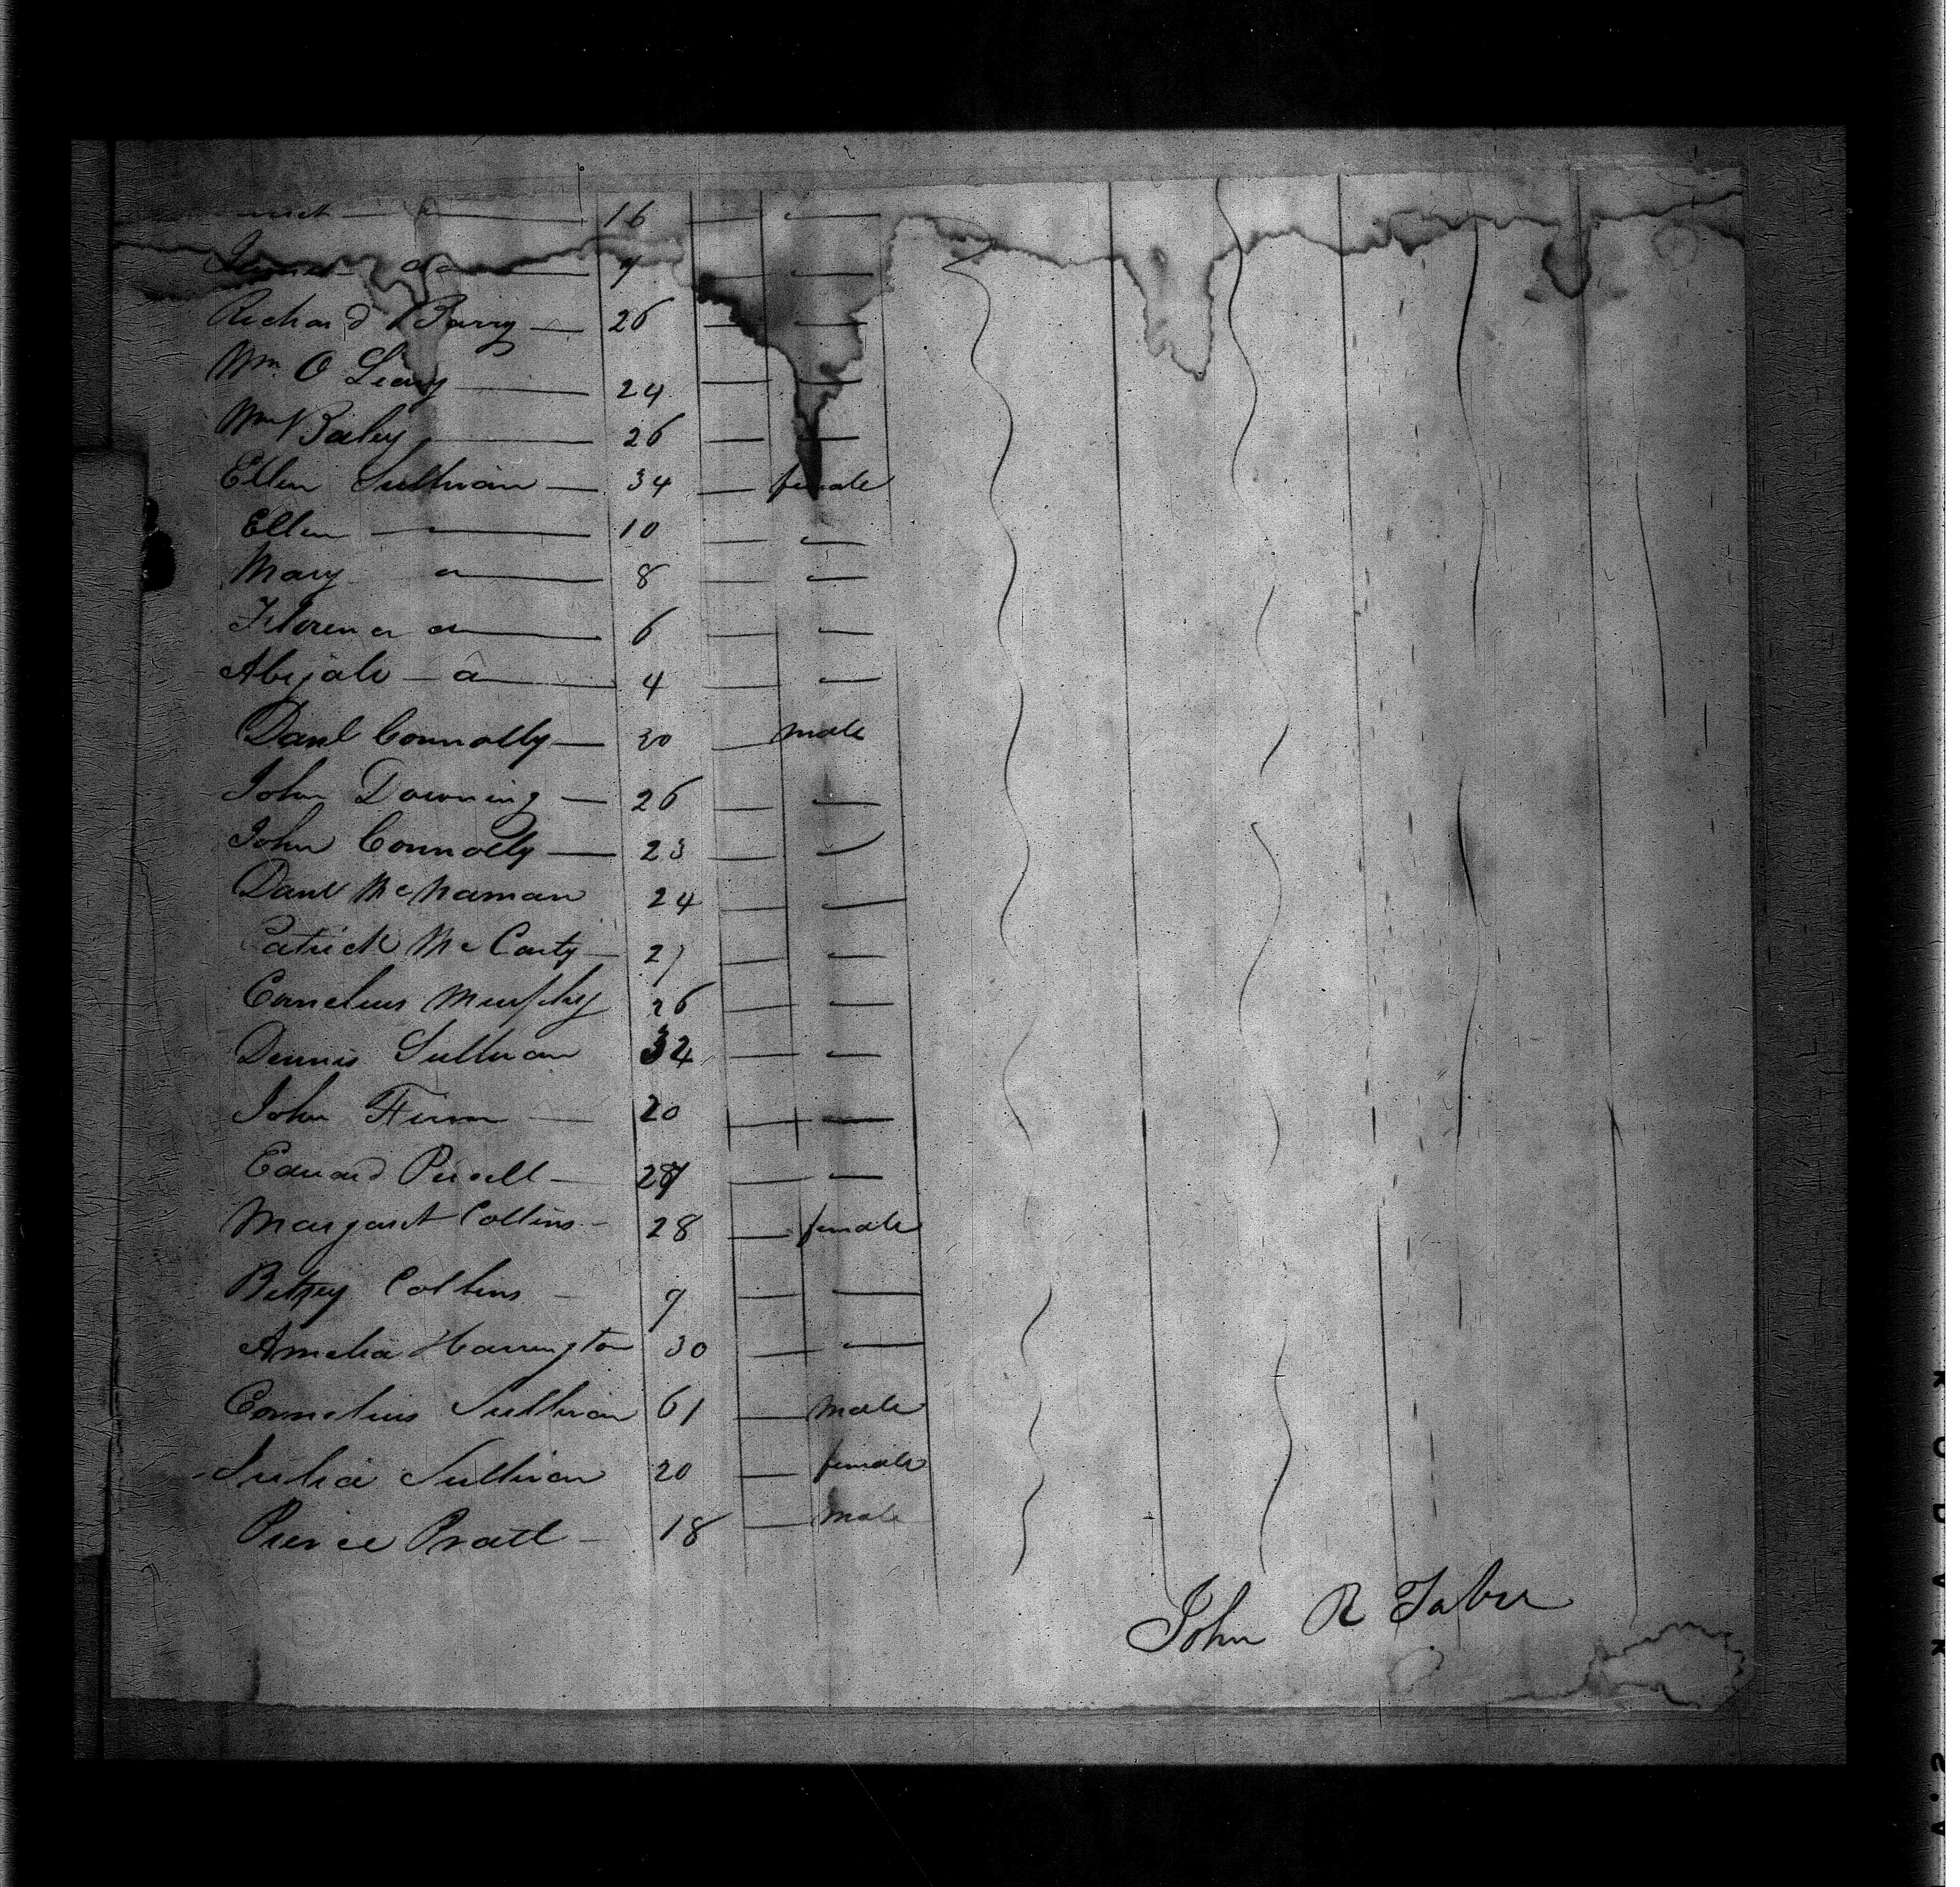 16
do 9
Richard Barry — 26 — —
Wm. O Leary — 24 — —
Wm Baley — 26 — —
Ellen Sullivan — 34 — female
Ellen — 10 — —
Mary — 8 — —
Florence — 6 — —
Abijale — 4 — —
Danl Connolly — 30 — male
John Downing — 26 — —
John Connolly — 23 — —
Danl McNaman 24 — —
Patrick McCarty — 27 — —
Cornelius Murphy 26 — —
Dennis Sullivan 32 — —
John Finn — 20 — —
Edward Purcell — — —
Margaret Collins - 28 — female
Betsey Collins - 9 — —
Amelia Harrington 30 — —
Cornelius Sullivan 61 — male
Julia Sullivan 20 — female
Pierce Pratt - 18 — male
John R Taber